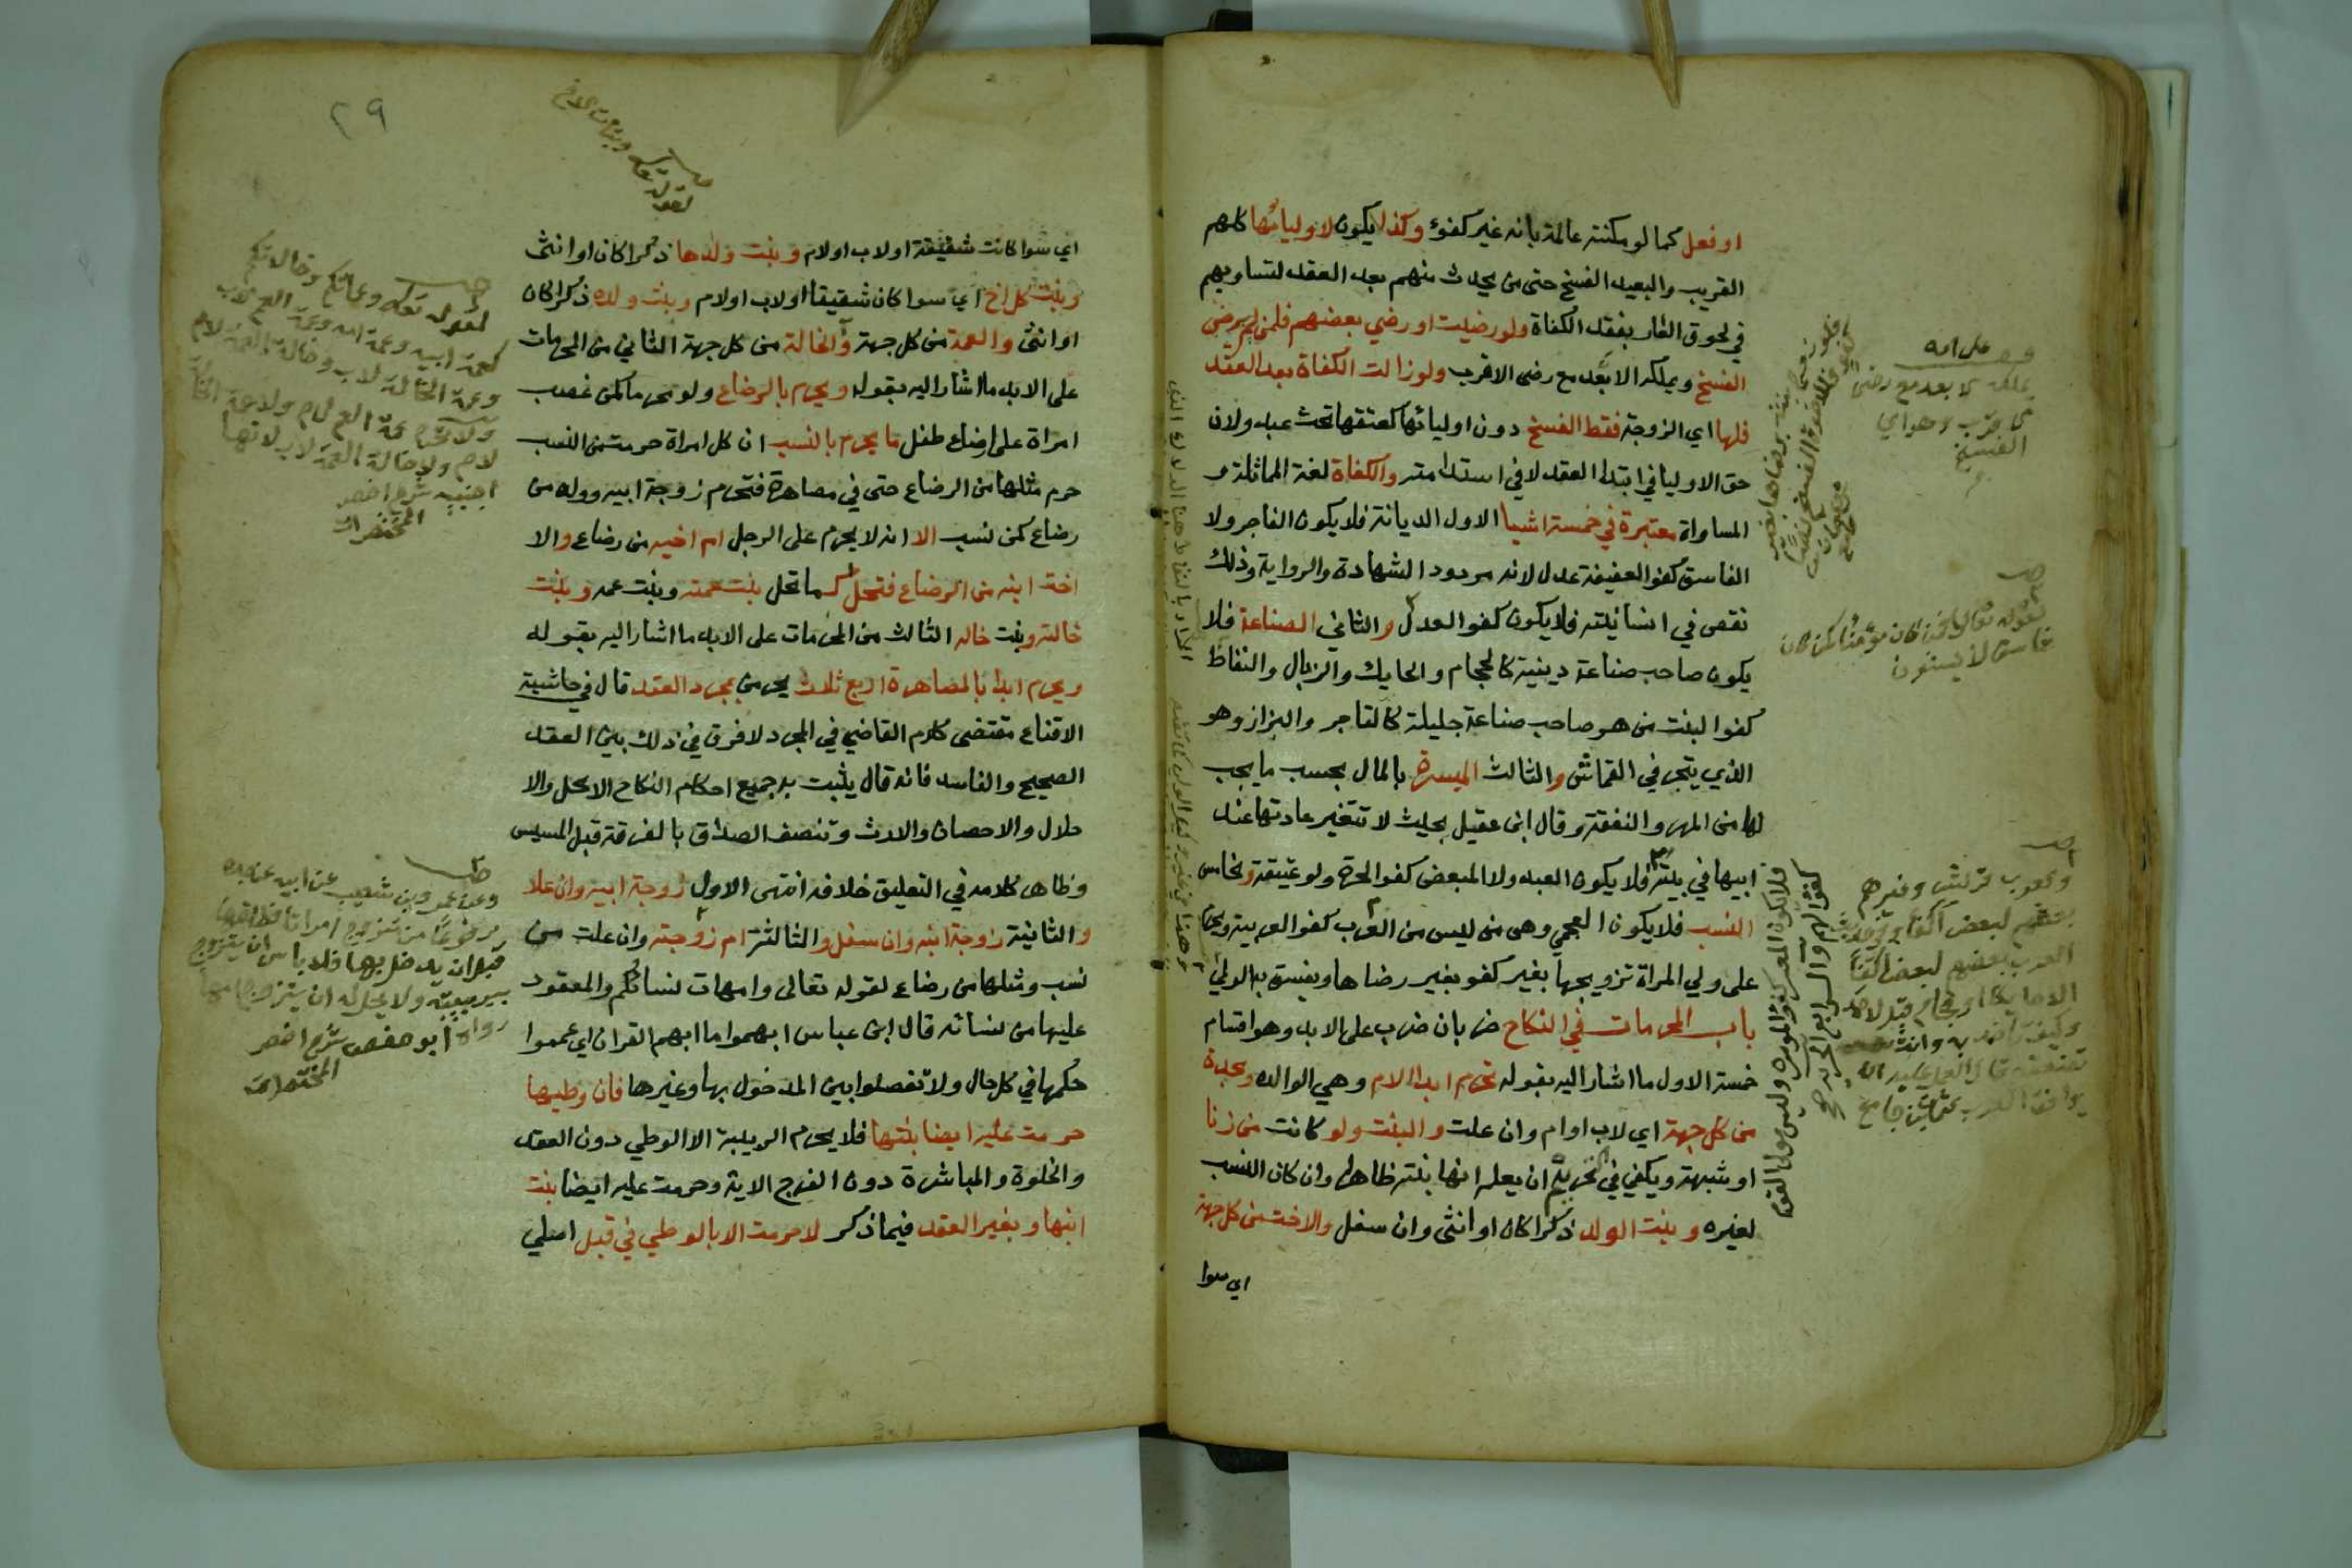 او فعل كما لو مكنته عالمة بانه غير كفؤ وكذا يكون لاوليائها كلهم
القريب والبعيد الفسخ حتى من يحدث منهم بعد العقد لتساويهم
في لحوق العار بفقد الكفاة ولو رضيت او رضي بعضهم فلمن لم يرض
الفسخ ويملكه الابعد مع رضى الاقرب ولو زالت الكفاة بعد العقد
فلها اي الزوجة فقط الفسخ دون اوليائها كعتقها تحت عبد ولان
حق الاوليا في ابتدا العقد لا في استدامته والكفاة لغة المماثلة و
المساواة معتبرة في خمسة اشيا الاول الديانة فلا يكون الفاجر ولا
الفاسق كفوا لعفيفة عدل لانه مردود الشهادة والرواية وذلك
نقص في انسانيته فلا يكون كفوا لعدل والثاني الصناعة فلا
يكون صاحب صناعة دينية كالحجام والحايك والزبال والنفاط
كفوا لبنت من هو صاحب صناعة جليلة كالتاجر والبزاز وهو
الذي يتجر في القماش والثالث الميسرة بالمال بحسب ما يجب
لها من المهر والنفقة وقال ابن عقيل بحيث لا تتغير عادتها عند
ابيها في بيته فلا يكون العبد ولا المبعض كفوا لحرة ولو عتيقة والخامس
النسب فلا يكون العجمي وهو من ليس من العرب كفوا لعربية ويحرم
على ولي المراة تزويجها بغير كفو بغير رضاها ويفسق به الولي
باب المحرمات في النكاح ضربان ضرب على الابد وهو اقسام
خمسة الاول ما اشار اليه بقوله تحرم ابدا الام وهي الوالده والجدة
من كل جهة اي لاب او ام وان علت والبنت ولو كانت من زنا
او شبهة ويكفي في التحريم ان يعلم انها بنته ظاهرا وان كان النسب
لغيره وبنت الولد ذكرا كان او انثى وان سفل والاخت من كل جهة
اي سوا
يملكه الابعد مع رضى
الاقرب وهو اي
الفسخ
لقوله تعالى افمن كان مؤمنا كمن كان
فاسقا لا يستوون
٢٩
اي سوا كانت شقيقة او لاب او لام وبنت ولدها ذكرا كان او انثى
وبنت كل اخ اي سوا كان شقيقا او لاب او لام وبنت ولده ذكرا كان
او انثى والعمة من كل جهة والخالة من كل جهة الثاني من المحرمات
على الابد ما اشار اليه بقوله ويحرم بالرضاع ولو محرما كمن غصب
امراة على ارضاع طفل ما يحرم بالنسب ان كل امراة حرمت من النسب
حرم مثلها من الرضاع حتى في مصاهرة فتحرم زوجة ابيه وولده من
رضاع كمن نسب الا انه لا يحرم على الرجل ام اخيه من رضاع والا
اخت ابنه من الرضاع فتحل كما تحل بنت عمته وبنت عمه وبنت
خالته وبنت خاله الثالث من المحرمات على الابد ما اشار اليه بقوله
ويحرم ابدا بالمصاهرة اربع ثلاث يحرمن بمجرد العقد قال في حاشية
الاقناع مقتضى كلام القاضي في المجرد لا فرق في ذلك بين العقد
الصحيح والفاسد فانه قال يثبت به جميع احكام النكاح الا الحل والا
حلال والاحصان والارث وتنصف الصداق بالفرقة قبل المسيس
وظاهر كلامه في التعليق خلافه انتهى الاول زوجة ابيه وان علا
والثانية زوجة ابنه وان سفل والثالثة ام زوجته وان علت من
نسب ومثلها من رضاع لقوله تعالى وامهات نسائكم والمعقود
عليها من نسائه قال ابن عباس ابهموا ما ابهم القران اي عمموا
حكمها في كل حال ولا تفصلوا بين المدخول بها وغيرها فان وطيها
حرمت عليه ايضا بنتها فلا يحرم الربيبة الا الوطي دون العقد
والخلوة والمباشرة دون الفرج الاية وحرمت عليه ايضا بنت
ابنها وبغير العقد فيما ذكر لا حرمت الا بالوطي في قبل اصلي
لقوله تعالى وبنات الاخ
لقوله تعالى وعماتكم وخالاتكم
كعمة ابيه وعمة امه وعمة العم لاب
وعمة الخالة لاب وخالة العمة لام
ولا تحرم عمة العم لام ولا عمة الخالة
لام ولا خالة العمة لاب لانها
اجنبية شرح اخصر
المختصرات
وعن عمرو بن شعيب عن ابيه عن جده
مرفوعا من تزوج امراة فطلقها
قبل ان يدخل بها فلا باس ان يتزوج
بربيبته ولا يحل له ان يتزوج امها
رواه ابو حفص شرح اخصر
المختصرات